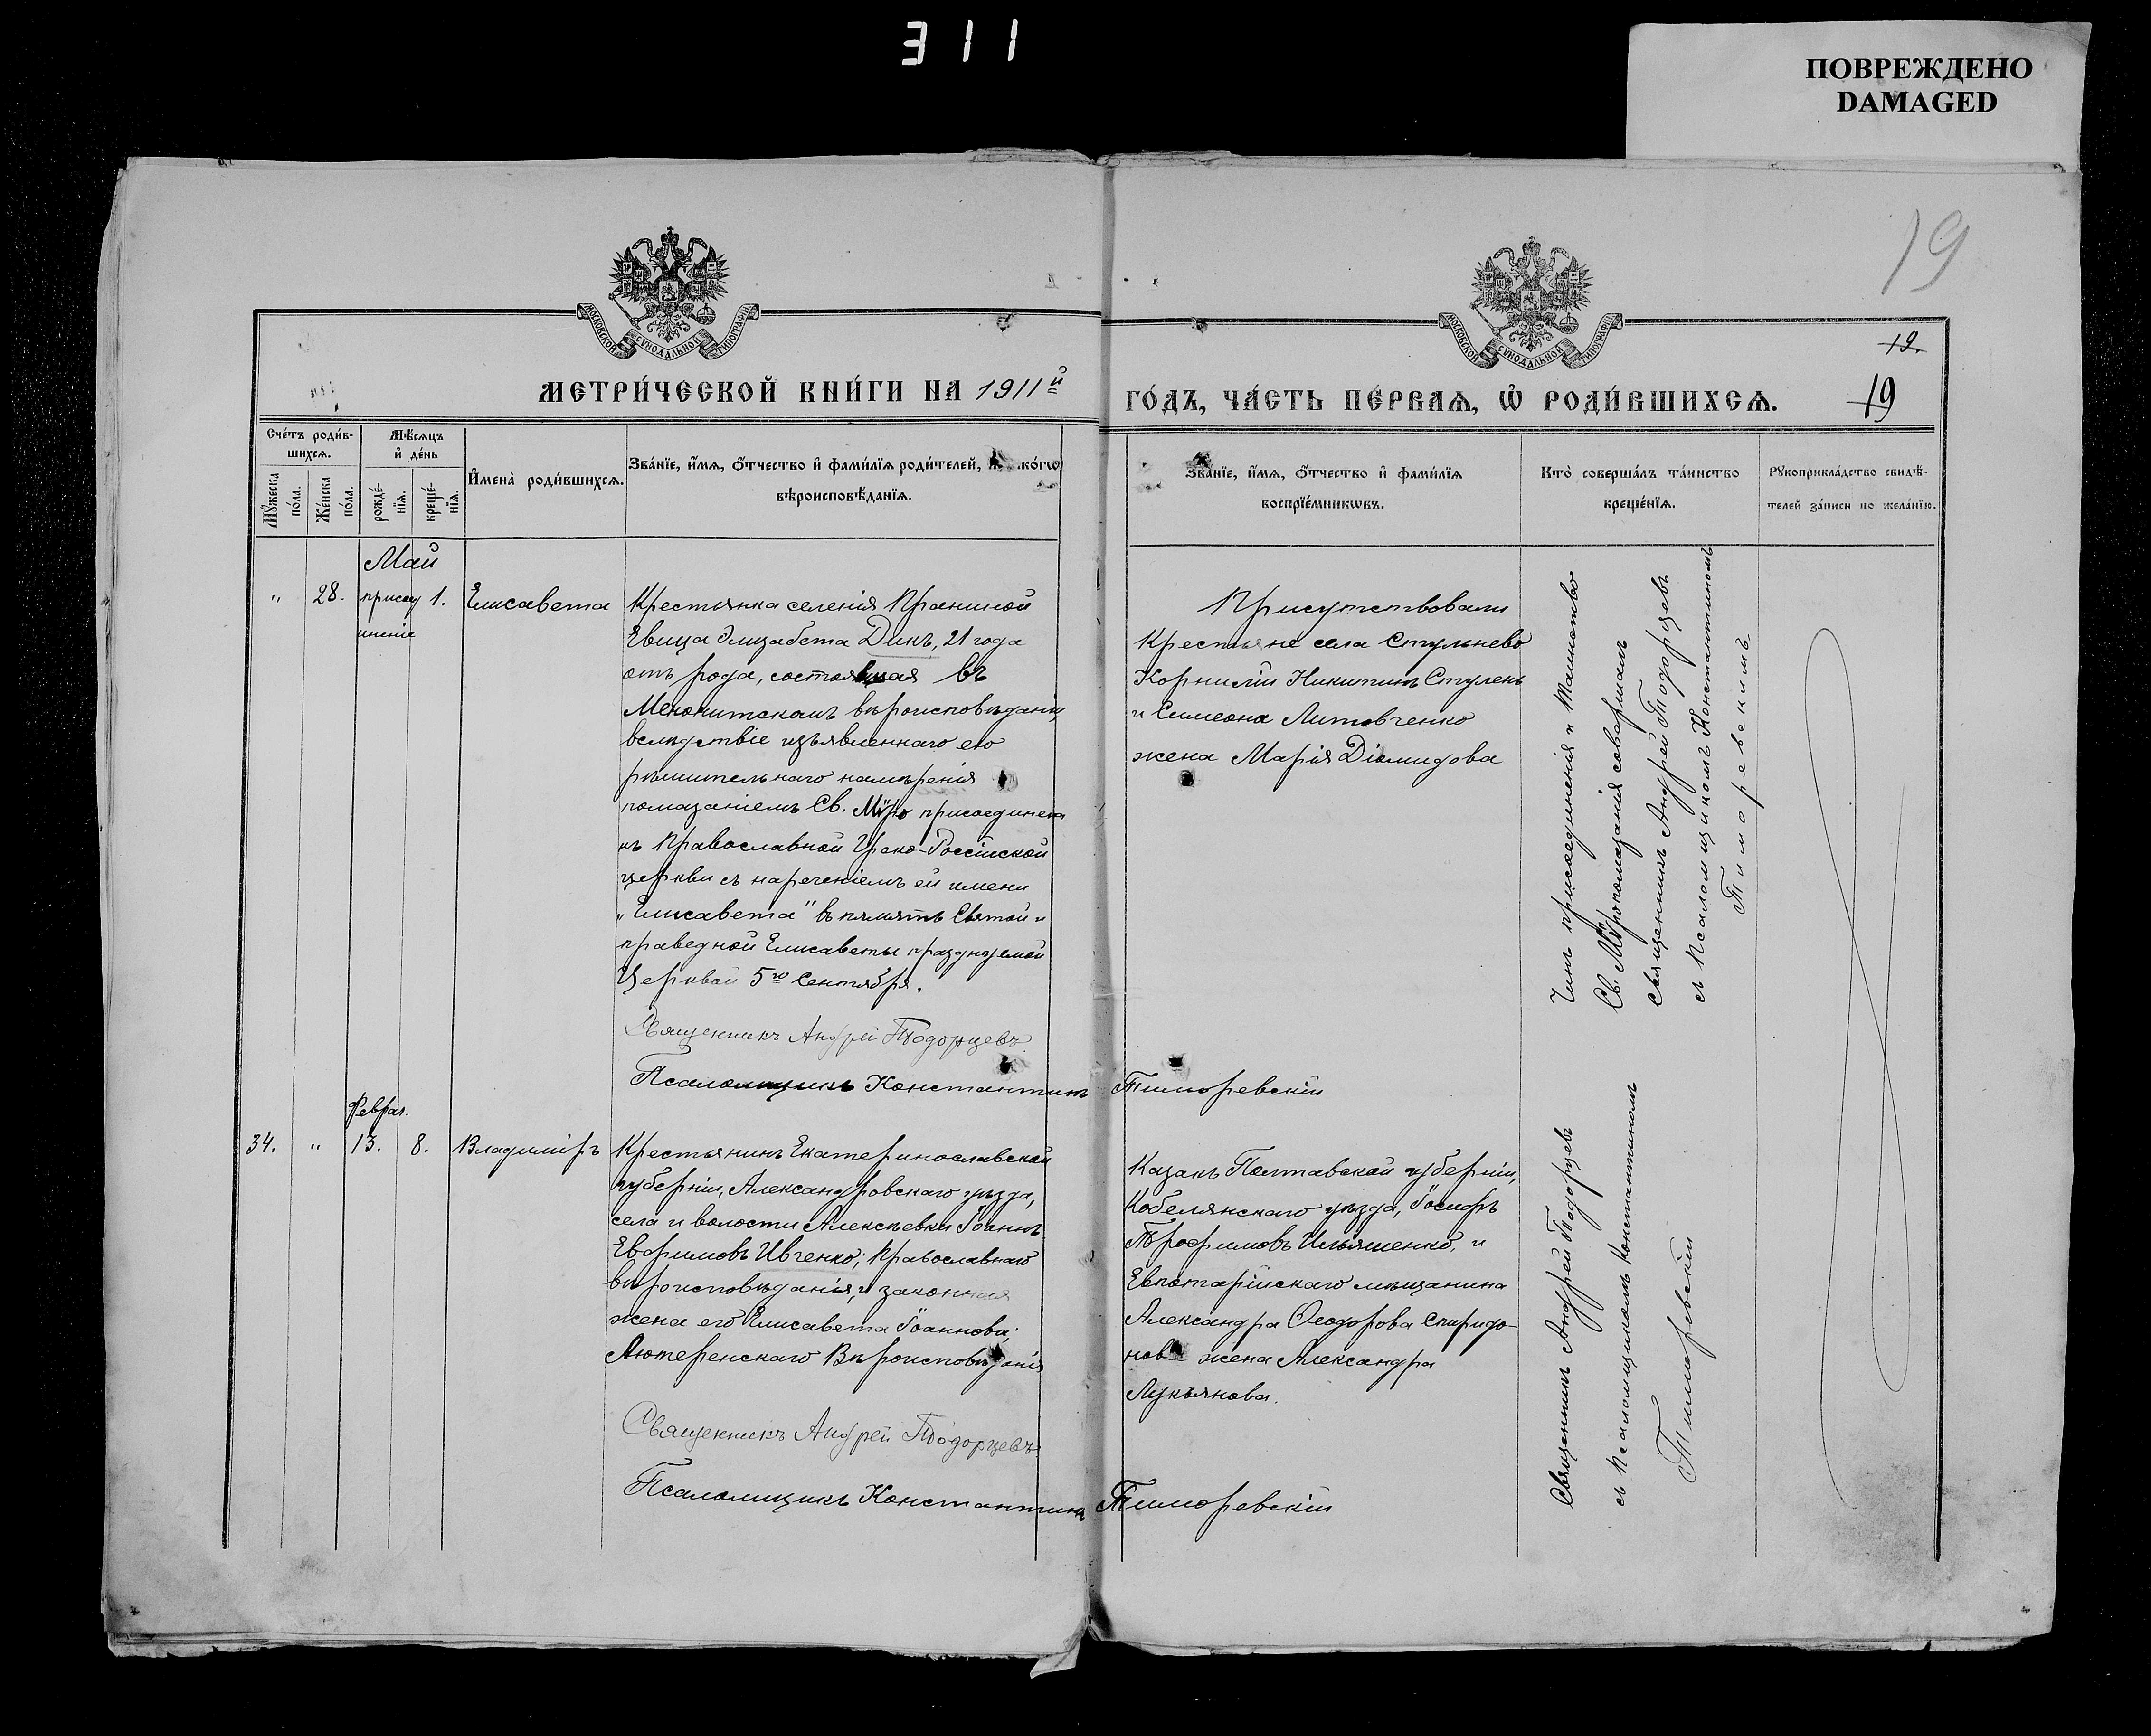 311
ПОВРЕЖДЕНО
DAMAGED
19
МОСКОВСКОЙ СѴНОДАЛЬНОЙ ТИПОГРАФІИ
МОСКОВСКОЙ СѴНОДАЛЬНОЙ ТИПОГРАФІИ
МЕТРИ́ЧЕСКОЙ КНИ́ГИ НА 1911й
ГО́ДЪ, ЧА́СТЬ ПЕ́РВАѦ, Ѡ҆ РОДИ́ВШИХСѦ.
19.
19
Сче́тъ роди́в-
шихсѧ.
Мѣ́сѧцъ
и҆ де́нь
Мꙋ́жеска
по́ла.
Же́нска
по́ла.
рожде́-
нїѧ.
креще́-
нїѧ.
И҆мена̀ роди́вшихсѧ.
Зва́нїе, и҆́мѧ, ѻ҆́тчество и҆ фами́лїѧ роди́телей, и҆ ко́гѡ
вѣроисповѣ́данїѧ.
Зва́нїе, и҆́мѧ, ѻ҆́тчество и҆ фами́лїѧ
воспрїе́мникѡвъ.
Кто̀ соверша́лъ та́инство
креще́нїѧ.
Рꙋкоприкла́дство свидѣ́-
телей за́писи по жела́нїю.
Май
" 28. присоу 1. Елисавета
инение
Крестьянка селенія
Евица Элизабета Дикъ, 21 года
отъ рода, состоявшая въ
Менонитскомъ вѣроисповѣданіи,
вслѣдствіе изъявленнаго ею
рѣшительнаго намѣренія
помазаніемъ Св. Мѵро присоединена
къ Православной Греко-Россійской
церкви съ нареченіемъ ей имени
„Елисавета" въ память Святой и
праведной Елисаветы празднуемой
Церквой 5го Сентября.
Священникъ Андрей Тодорцевъ
Псаломщикъ Константинъ Тиморевскій
Присутствовали
Крестьяне села Стульнево
Корнилій Никитинъ Стулень
и Симеона Литовченко
жена Марія Діомидова
Чинъ присоединенія и Таинство
Св. Мѵропомазанія совершалъ
Священникъ Андрей Тодорцевъ
съ Псаломщикомъ Константиномъ
Тиморевскимъ.
Феврал.
34. " 13. 8. Владиміръ
Крестьянинъ Екатеринославской
губерніи, Александровскаго уѣзда,
села и волости Алексѣевки Іоаннъ
Евфимовъ Ивченко; Православнаго
вѣроисповѣданія, и законная
жена его Елисавета Іоаннова;
Лютеренскаго Вѣроисповѣданія
Священникъ Андрей Тодорцевъ
Псаломщикъ Константинъ Тиморевскій
Казакъ Полтавской губерніи,
Кобелянскаго уѣзда, Іосифъ
Трофимовъ Ильяшенко, и
Евпаторійскаго мѣщанина
Александра Ѳеодорова Спиридо-
нова жена Александра
Лукьянова.
Священникъ Андрей Тодорцевъ
съ Псаломщикомъ Константиномъ
Тиморевскій